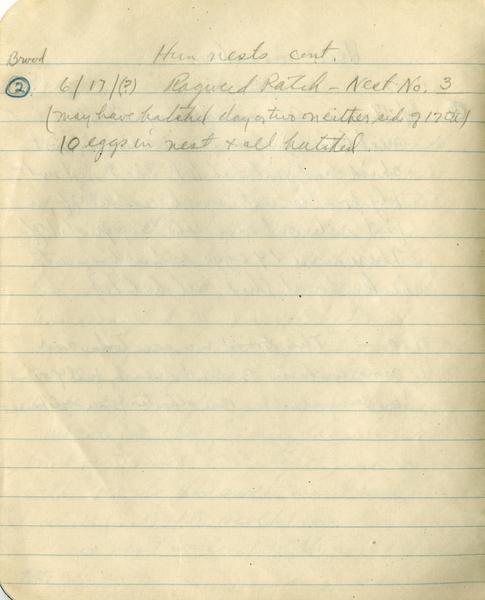 Hun nests cont.
Brood
(2) 6/17/(?) Ragweed Patch - Nest No. 3
(may have hatched day or two on either side of 17th)
10 eggs in nest & all hatched